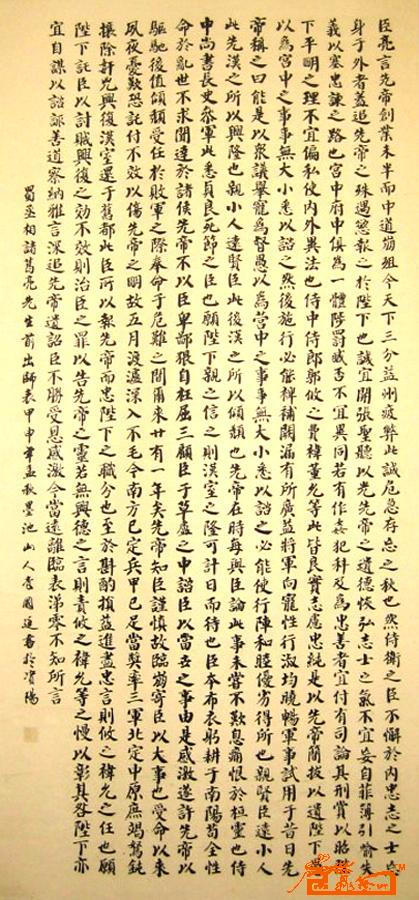 臣亮言先帝創業未半而中道崩殂今天下三分益州疲弊此誠危急存亡之秋也然侍衛之臣不懈於內忠志之士忘
身于外者蓋追先帝之殊遇欲報之於陛下也誠宜開張聖聽以光先帝之遺德恢弘志士之氣不宜妄自菲薄引喻失
義以塞忠諫之路也宮中府中俱為一體陟罰臧否不宜異同若有作姦犯科及為忠善者宜付有司論其刑賞以昭陛
下平明之理不宜偏私使內外異法也侍中侍郎郭攸之費禕董允等此皆良實志慮忠純是以先帝簡拔以遺陛下愚
以為宮中之事事無大小悉以諮之然後施行必能裨補闕漏有所廣益將軍向寵性行淑均曉暢軍事試用于昔日先
帝稱之曰能是以眾議舉寵為督愚以為營中之事事無大小悉以諮之必能使行陣和睦優劣得所也親賢臣遠小人
此先漢之所以興隆也親小人遠賢臣此後漢之所以傾頹也先帝在時每與臣論此事未嘗不歎息痛恨於桓靈也侍
中尚書長史參軍此悉貞良死節之臣也願陛下親之信之則漢室之隆可計日而待也臣本布衣躬耕于南陽苟全性
命於亂世不求聞達於諸侯先帝不以臣卑鄙猥自枉屈三顧臣于草廬之中諮臣以當世之事由是感激遂許先帝以
驅馳後值傾頹受任於敗軍之際奉命于危難之間爾來廿有一年矣先帝知臣謹慎故臨崩寄臣以大事也受命以來
夙夜憂歎恐託付不效以傷先帝之明故五月渡瀘深入不毛今南方已定兵甲已足當獎率三軍北定中原庶竭駑鈍
攘除奸兇興復漢室還于舊都此臣所以報先帝而忠陛下之職分也至於斟酌損益進盡忠言則攸之禕允之任也願
陛下託臣以討賊興復之効不效則治臣之罪以告先帝之靈若無興德之言則責攸之禕允等之慢以彰其咎陛下亦
宜自謀以諮諏善道察納雅言深追先帝遺詔臣不勝受恩感激今當遠離臨表涕零不知所言
蜀丞相諸葛亮先生前出師表甲申年孟秋墨池山人李國廷書於資陽